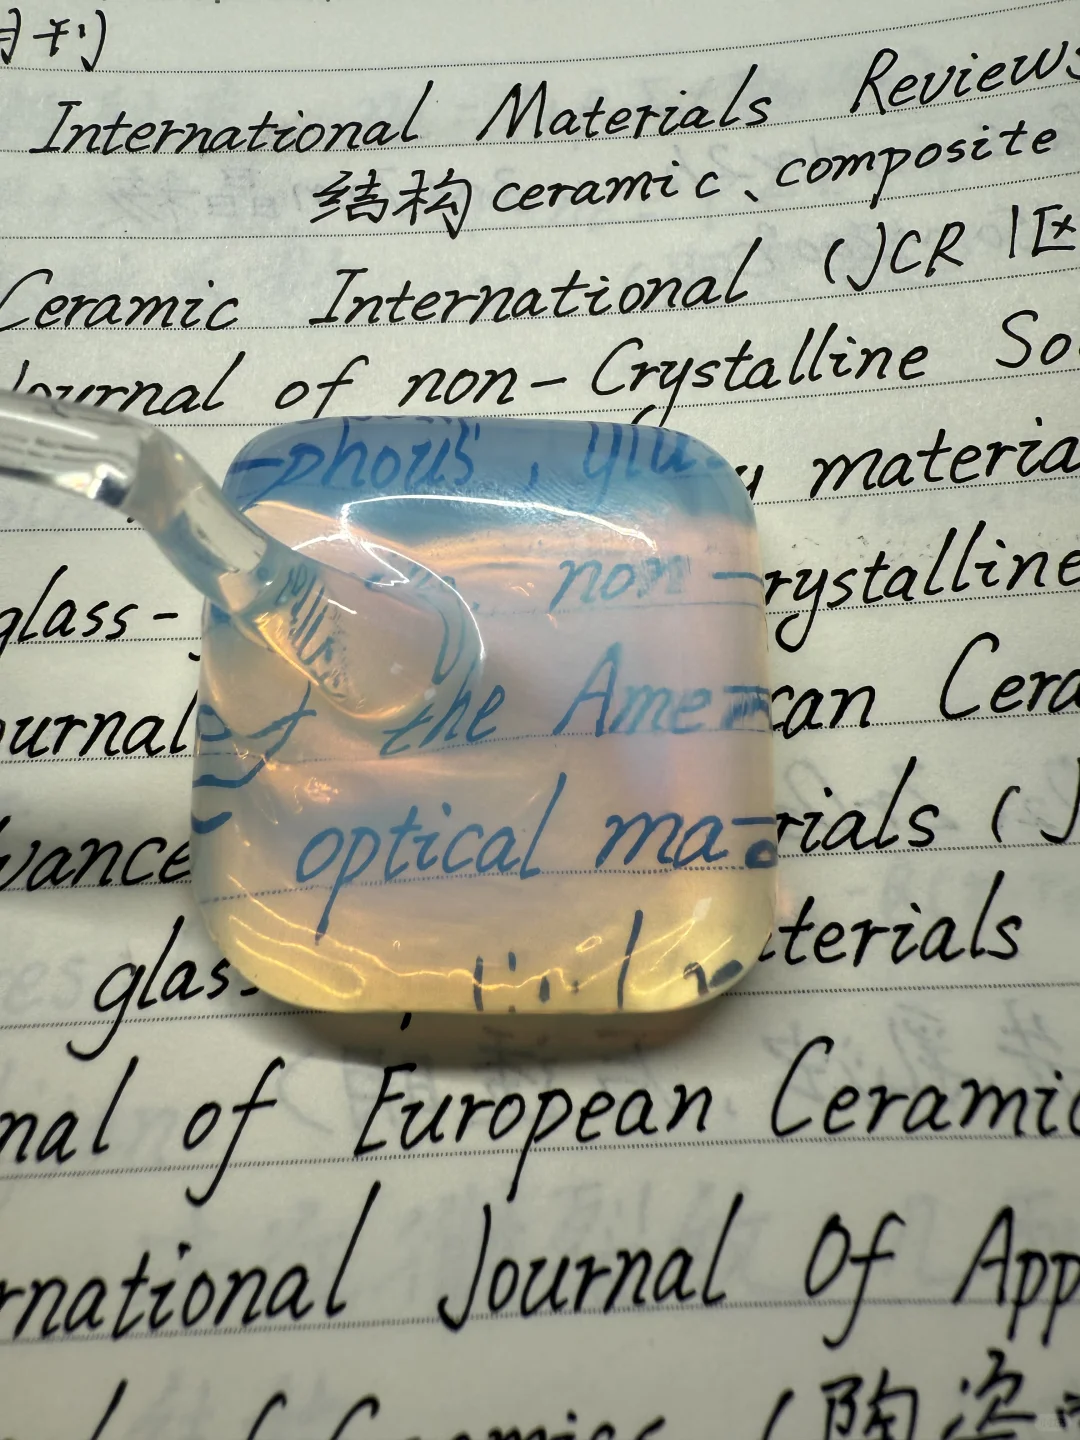 月刊)
International Materials Reviews
结构 ceramic、composite
Ceramic International (JCR 1区
Journal of non-Crystalline So
-phous, materia
glass- non-crystalline
ournal of the American Cera
vance optical materials (J
glass materials
nal of European Ceramic
rnational Journal Of App
Ceramics (陶瓷